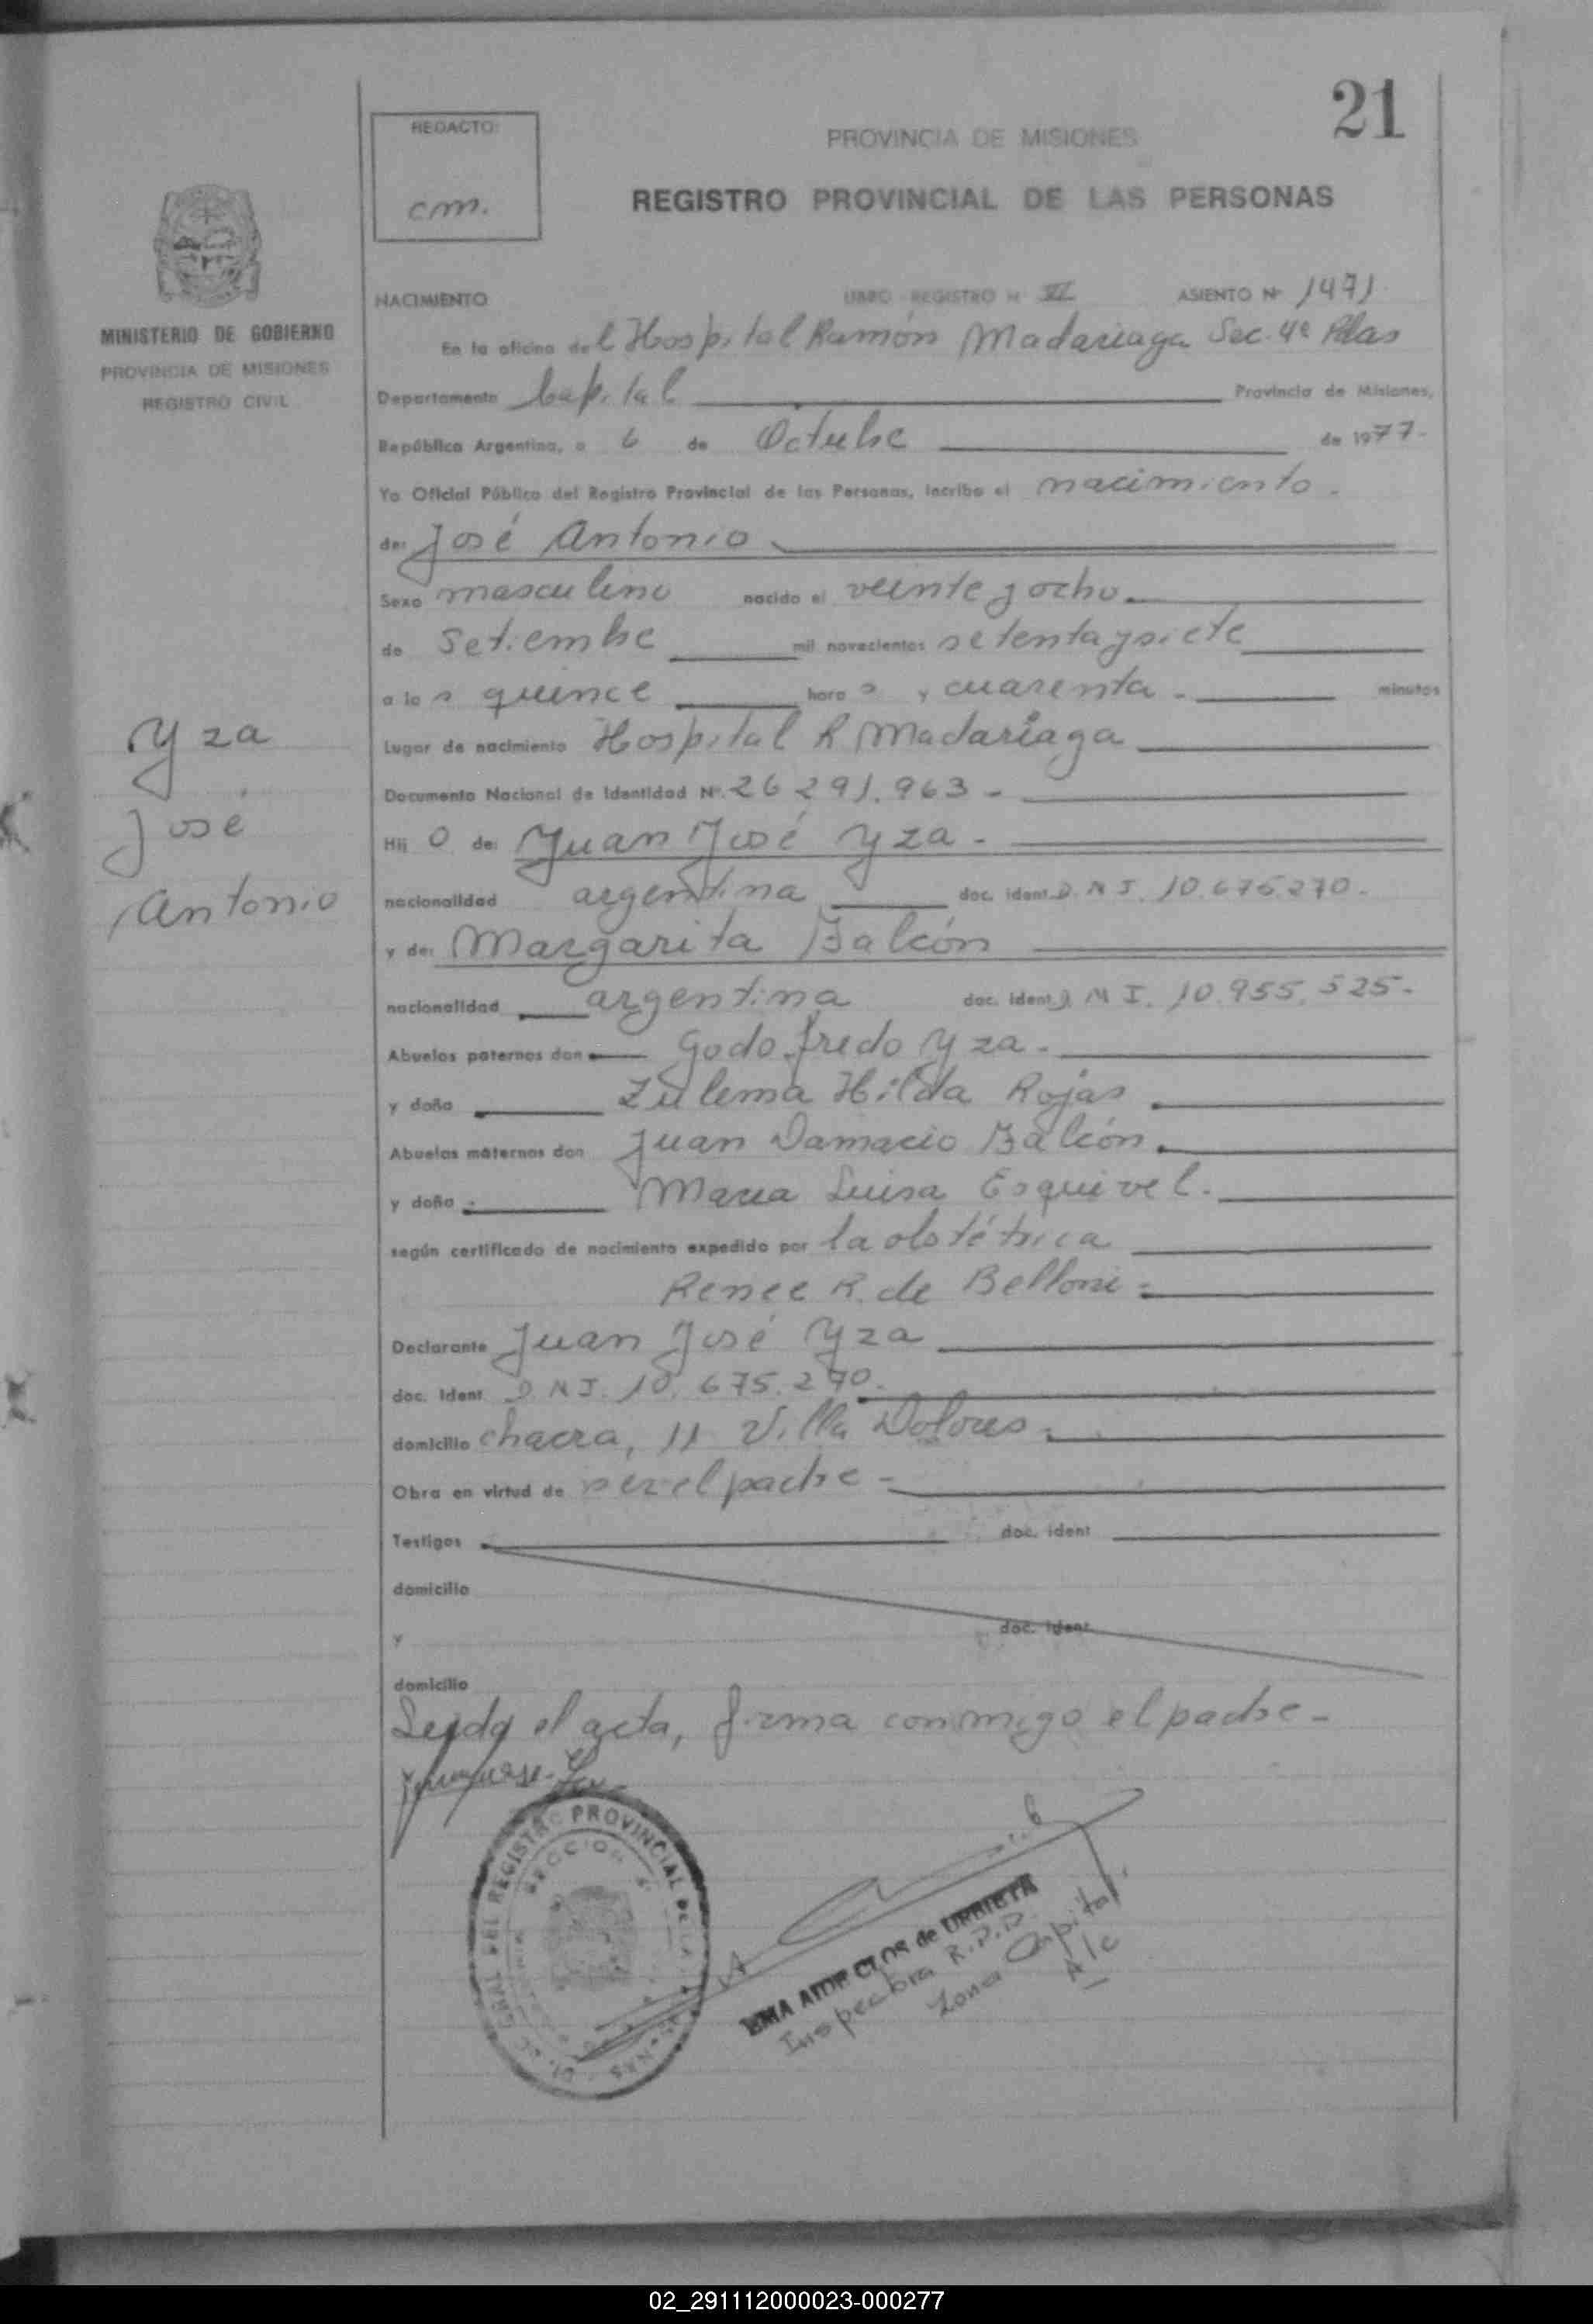 21
REDACTO:
cm.
PROVINCIA DE MISIONES
REGISTRO PROVINCIAL DE LAS PERSONAS
MINISTERIO DE GOBIERNO
PROVINCIA DE MISIONES
REGISTRO CIVIL
NACIMIENTO LIBRO REGISTRO N VI ASIENTO Nº 1471
En la oficina del Hospital Ramón Madariaga Sec. 4ª Pdas
Departamento Capital Provincia de Misiones,
República Argentina, a 6 de Octubre de 1977-
Yo Oficial Público del Registro Provincial de las Personas, inscribo el nacimiento.
de: José Antonio
Sexo masculino nacido el veinte y ocho
de Setiembre mil novecientos setenta y siete
a las quince horas y cuarenta - minutos
Yza
José
Antonio
Lugar de nacimiento Hospital R Madariaga
Documento Nacional de Identidad Nº. 26 291.963 -
Hij o de: Juan José Yza -
nacionalidad argentina doc. ident. D.N.I. 10.675.270.
y de: Margarita Balcón
nacionalidad argentina doc. ident. D.N.I. 10.955.525-
Abuelos paternos don Godofredo Yza -
y doña Zulema Hilda Rojas
Abuelos maternos don Juan Damacio Balcón
y doña Maria Luisa Esquivel.
según certificado de nacimiento expedido por la obstétrica
Renee R. de Belloni
Declarante Juan José Yza
doc. Ident. D.N.I. 10.675.270.
domicilio chacra, 11 Villa Dolores
Obra en virtud de ser el padre -
Testigos doc. ident
domicilio
y doc. ident
domicilio
Leyda el acta, firma conmigo el padre -
REGISTRO PROVINCIAL DE LAS
SECCION
de URBIETA
Inspectora R.P.P.
Zona Capital
A/c
02_291112000023-000277